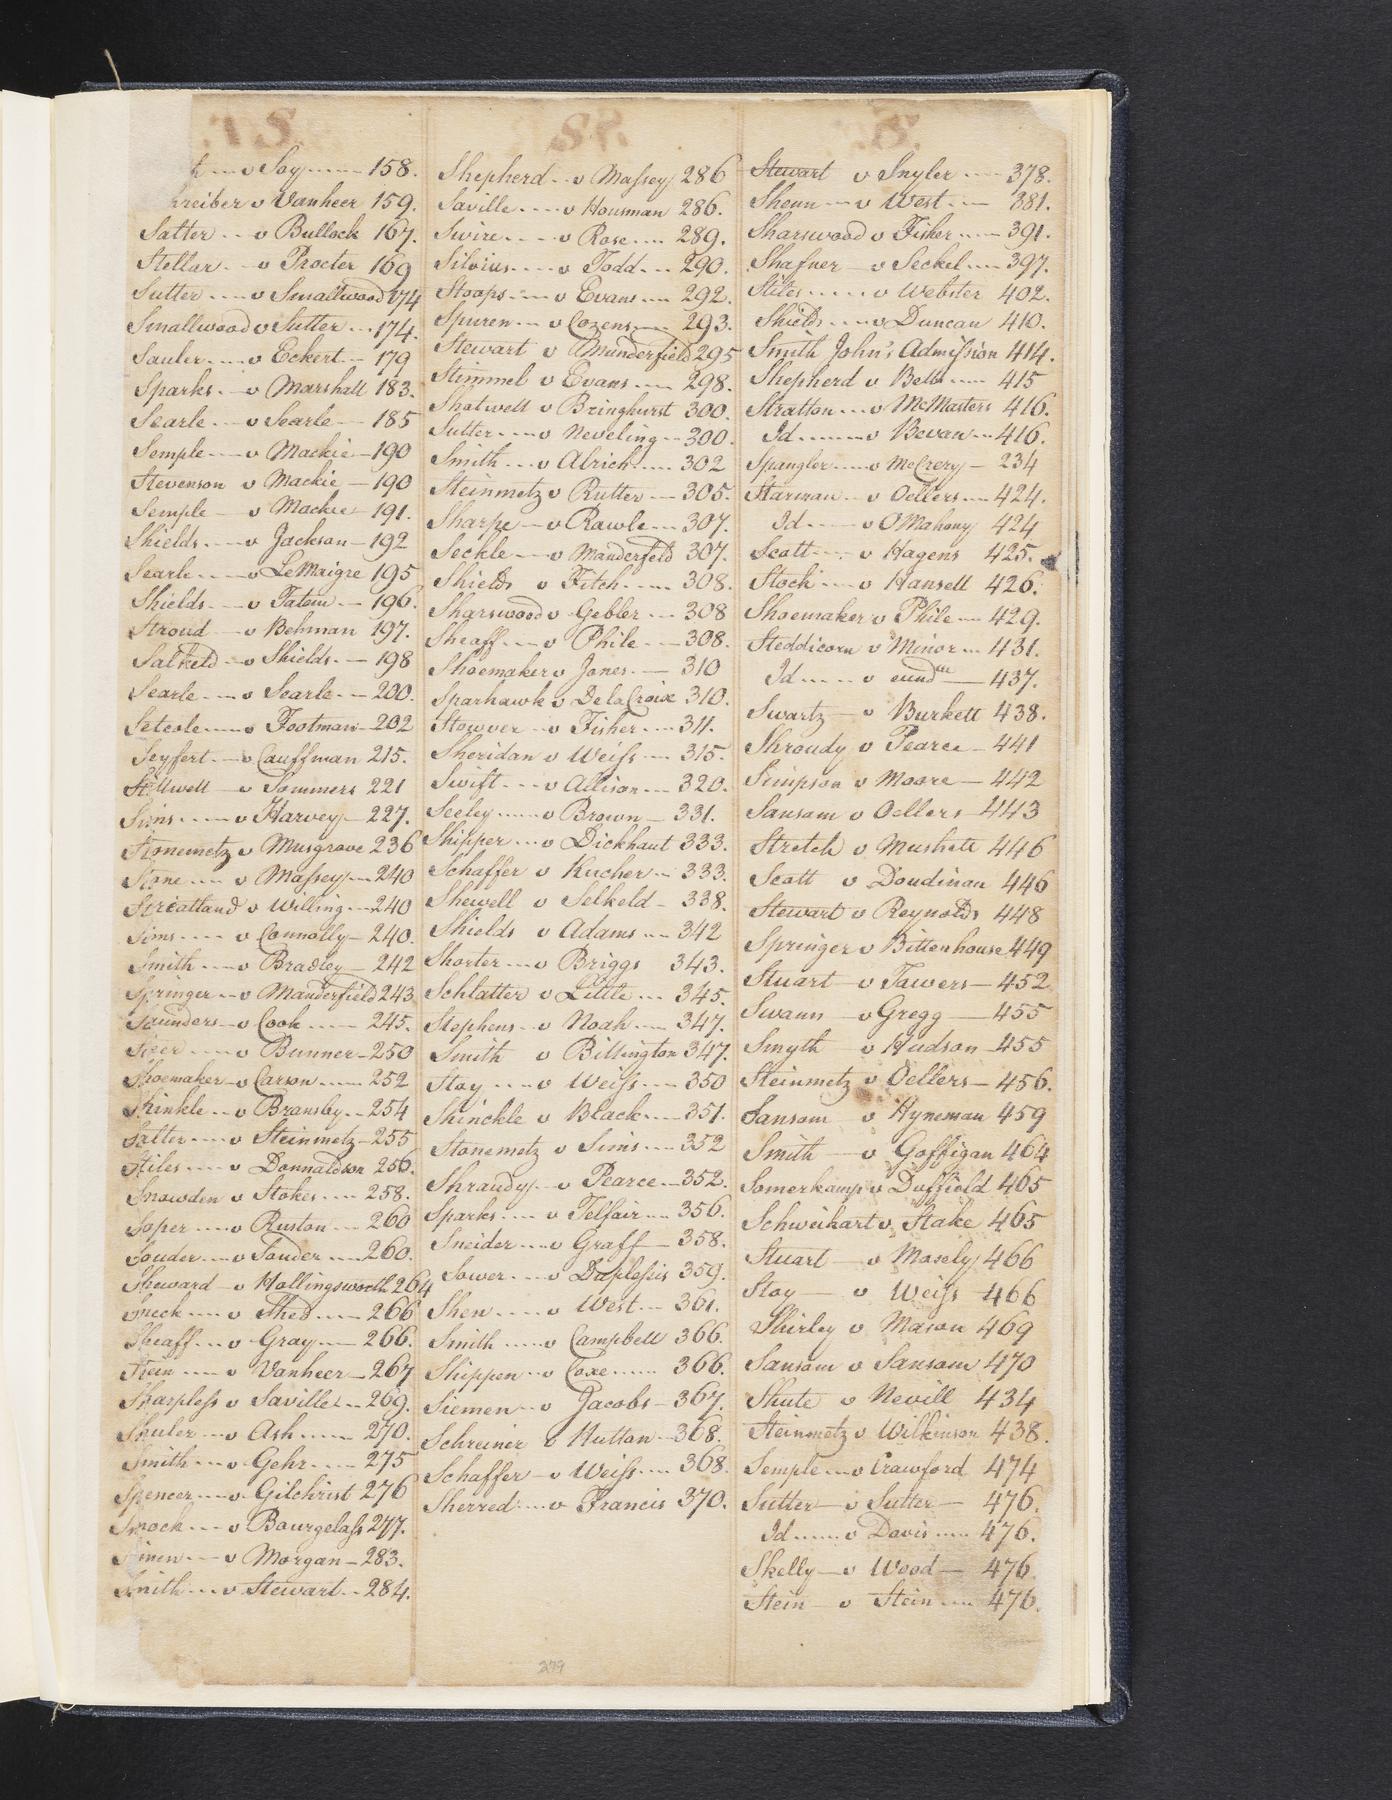 S.
v Say 158.
hreiber v Vanheer 159.
Satter v Bullock 167.
Stellar v Procter 169
Sutter v Smallwood 174
Smallwood v Sutter 174.
Sauler v Eckert 179
Sparks v Marshall 183.
Searle v Searle 185
Semple v Mackie 190
Stevenson v Mackie 190
Semple v Mackie 191.
Shields v Jackson 192
Searle v LeMaigre 195
Shields v Tatem 196.
Stroud v Behman 197.
Salkeld v Shields 198
Searle v Searle 200.
Seteole v Footman 202
Seyfert v Cauffman 215.
Stillwell v Sommers 221
Sims v Harvey 227.
Stonemetz v Musgrove 236
Stone v Massey 240
Streatland v Willing 240
Sims v Connolly 240.
Smith v Bradley 242
Springer v Manderfield 243
Saunders v Cook 245.
v Bunner 250
Shoemaker v Carson 252
Shinkle v Bransby 254
Salter v Steinmetz 255
Stiles v Donnaldson 256.
Snowden v Stokes 258.
Soper v Ruston 260
Souder v Souder 260.
Sheward v Hollingsworth 264
Sneck v Shed 266
Sheaff v Gray 266.
Stein v Vanheer 267
Sharpless v Saville 269.
Shuler v Ash 270.
Smith v Gehr 275
Spencer v Gilchrist 276
Smock v Bourgelass 277.
v Morgan 283.
Smith v Stewart 284.
S.
Shepherd v Massey 286
Saville v Housman 286.
Swire v Rose 289.
Silvius v Todd 290.
Stoops v Evans 292.
Spuren v Cozens 293.
Stewart v Manderfield 295
Stimmel v Evans 298.
Shotwell v Bringhurst 300.
Sutter v Neveling 300.
Smith v Alrich 302
Steinmetz v Rutter 305.
Sharpe v Rawle 307.
Seckle v Manderfeld 307.
Shields v Fitch 308.
Sharswood v Gebler 308
Sheaff v Phile 308.
Shoemaker v Jones 310
Sparhawk v DelaCroix 310.
Stowver v Fisher 311.
Sheridan v Weiss 315.
Swift v Allison 320.
Seeley v Brown 331.
Shipper v Dickhaut 333.
Schaffer v Kucher 333.
Shewell v Selkeld 338.
Shields v Adams 342
Shorter v Briggs 343.
Schlatter v Little 345.
Stephens v Noah 347.
Smith v Billington 347.
Stoy v Weiss 350
Shinckle v Black 351.
Stonemetz v Sims 352
Shraudy v Pearce 352.
Sparks v Telfair 356.
Sneider v Graff 358.
Sower v Duplessis 359.
Shen v West 361.
Smith v Campbell 366.
Shippen v Coxe 366.
Siemen v Jacobs 367.
Schreiner v Hutton 368.
Schaffer v Weiss 368.
Sherred v Francis 370.
S.
Stewart v Snyler 378.
Shenn v West 381.
Sharswood v Fisher 391.
Shafner v Seckel 397.
Stiles v Webster 402.
Shields v Duncan 410.
Smith John's Admission 414.
Shepherd v Bell 415
Stratton v McMasters 416.
Id v Bevan 416.
Spangler v McCrery 234
Starman v Oellers 424.
Id v OMahony 424
Scott v Hagens 425.
Stock v Hansell 426.
Shoemaker v Phile 429.
Steddicorn v Minor 431.
Id v eundm 437.
Swartz v Burkett 438.
Shroudy v Pearce 441
Simpson v Moore 442
Sansom v Oellers 443
Stretch v Mushett 446
Scott v Doudinan 446
Stewart v Reynolds 448
Springer v Bittenhouse 449
Stuart v Tawers 452
Swann v Gregg 455
Smyth v Hudson 455
Steinmetz v Oellers 456.
Sansom v Hyneman 459
Smith v Goffigan 464
Somerkamp v Duffield 465
Schweihart v. Stake 465
Stuart v Mosely 466
Stoy v Weiss 466
Shirley v Mason 469
Sansom v Sansom 470
Shute v Nevill 434
Steinmetz v Wilkinson 438.
Semple v Crawford 474
Sutter v Sutter 476.
Id v Davis 476.
Skelly v Wood 476
Stein v Stein 476.
279